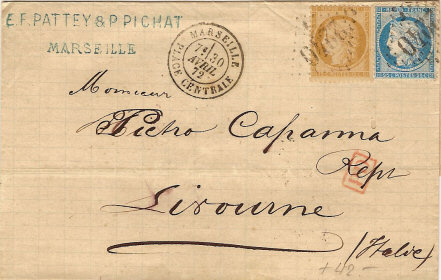 E.F. PATTEY & P. PICHAT
MARSEILLE
MARSEILLE
30
AVRIL
72
PLACE CENTRALE
Monsieur
Pietro Capanna
Rept
Livourne
(Italie)